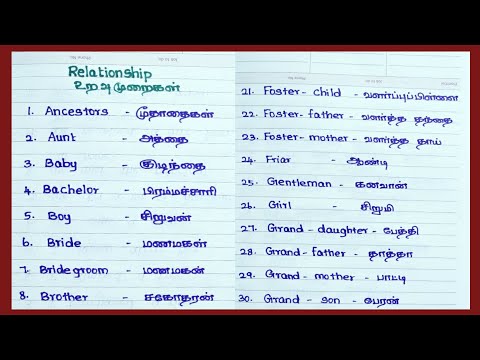 Relationship
உறவுமுறைகள்
1. Ancestors - மூதாதைகள்
2. Aunt - அத்தை
3. Baby - குழந்தை
4. Bachelor - பிரம்மச்சாரி
5. Boy - சிறுவன்
6. Bride - மணமகள்
7. Bridegroom - மணமகன்
8. Brother - சகோதரன்
21. Foster - child - வளர்ப்புப்பிள்ளை
22. Foster - father - வளர்த்த தந்தை
23. Foster - mother - வளர்த்த தாய்
24. Friar - ஆண்டி
25. Gentleman - கனவான்
26. Girl - சிறுமி
27. Grand - daughter - பேத்தி
28. Grand - father - தாத்தா
29. Grand - mother - பாட்டி
30. Grand - son - பேரன்